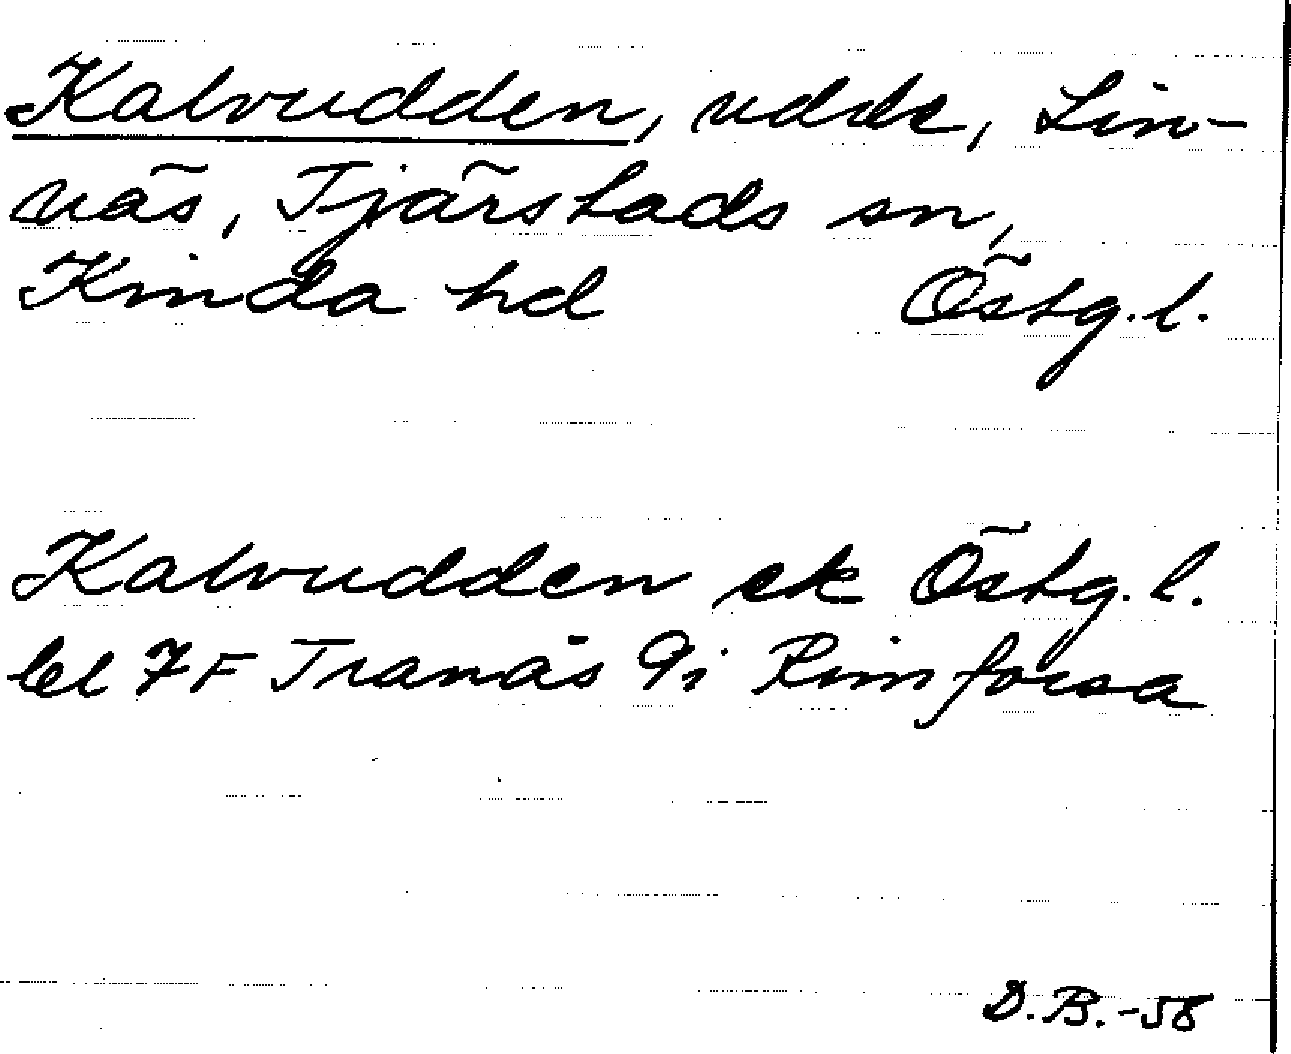 Kalvudden, udde, Lin-
näs, Tjärstads sn,
Kinda hd Östg. l.
Kalvudden ek Östg. l.
bl 7F Tranås 9i Rimforsa
D.B.-58